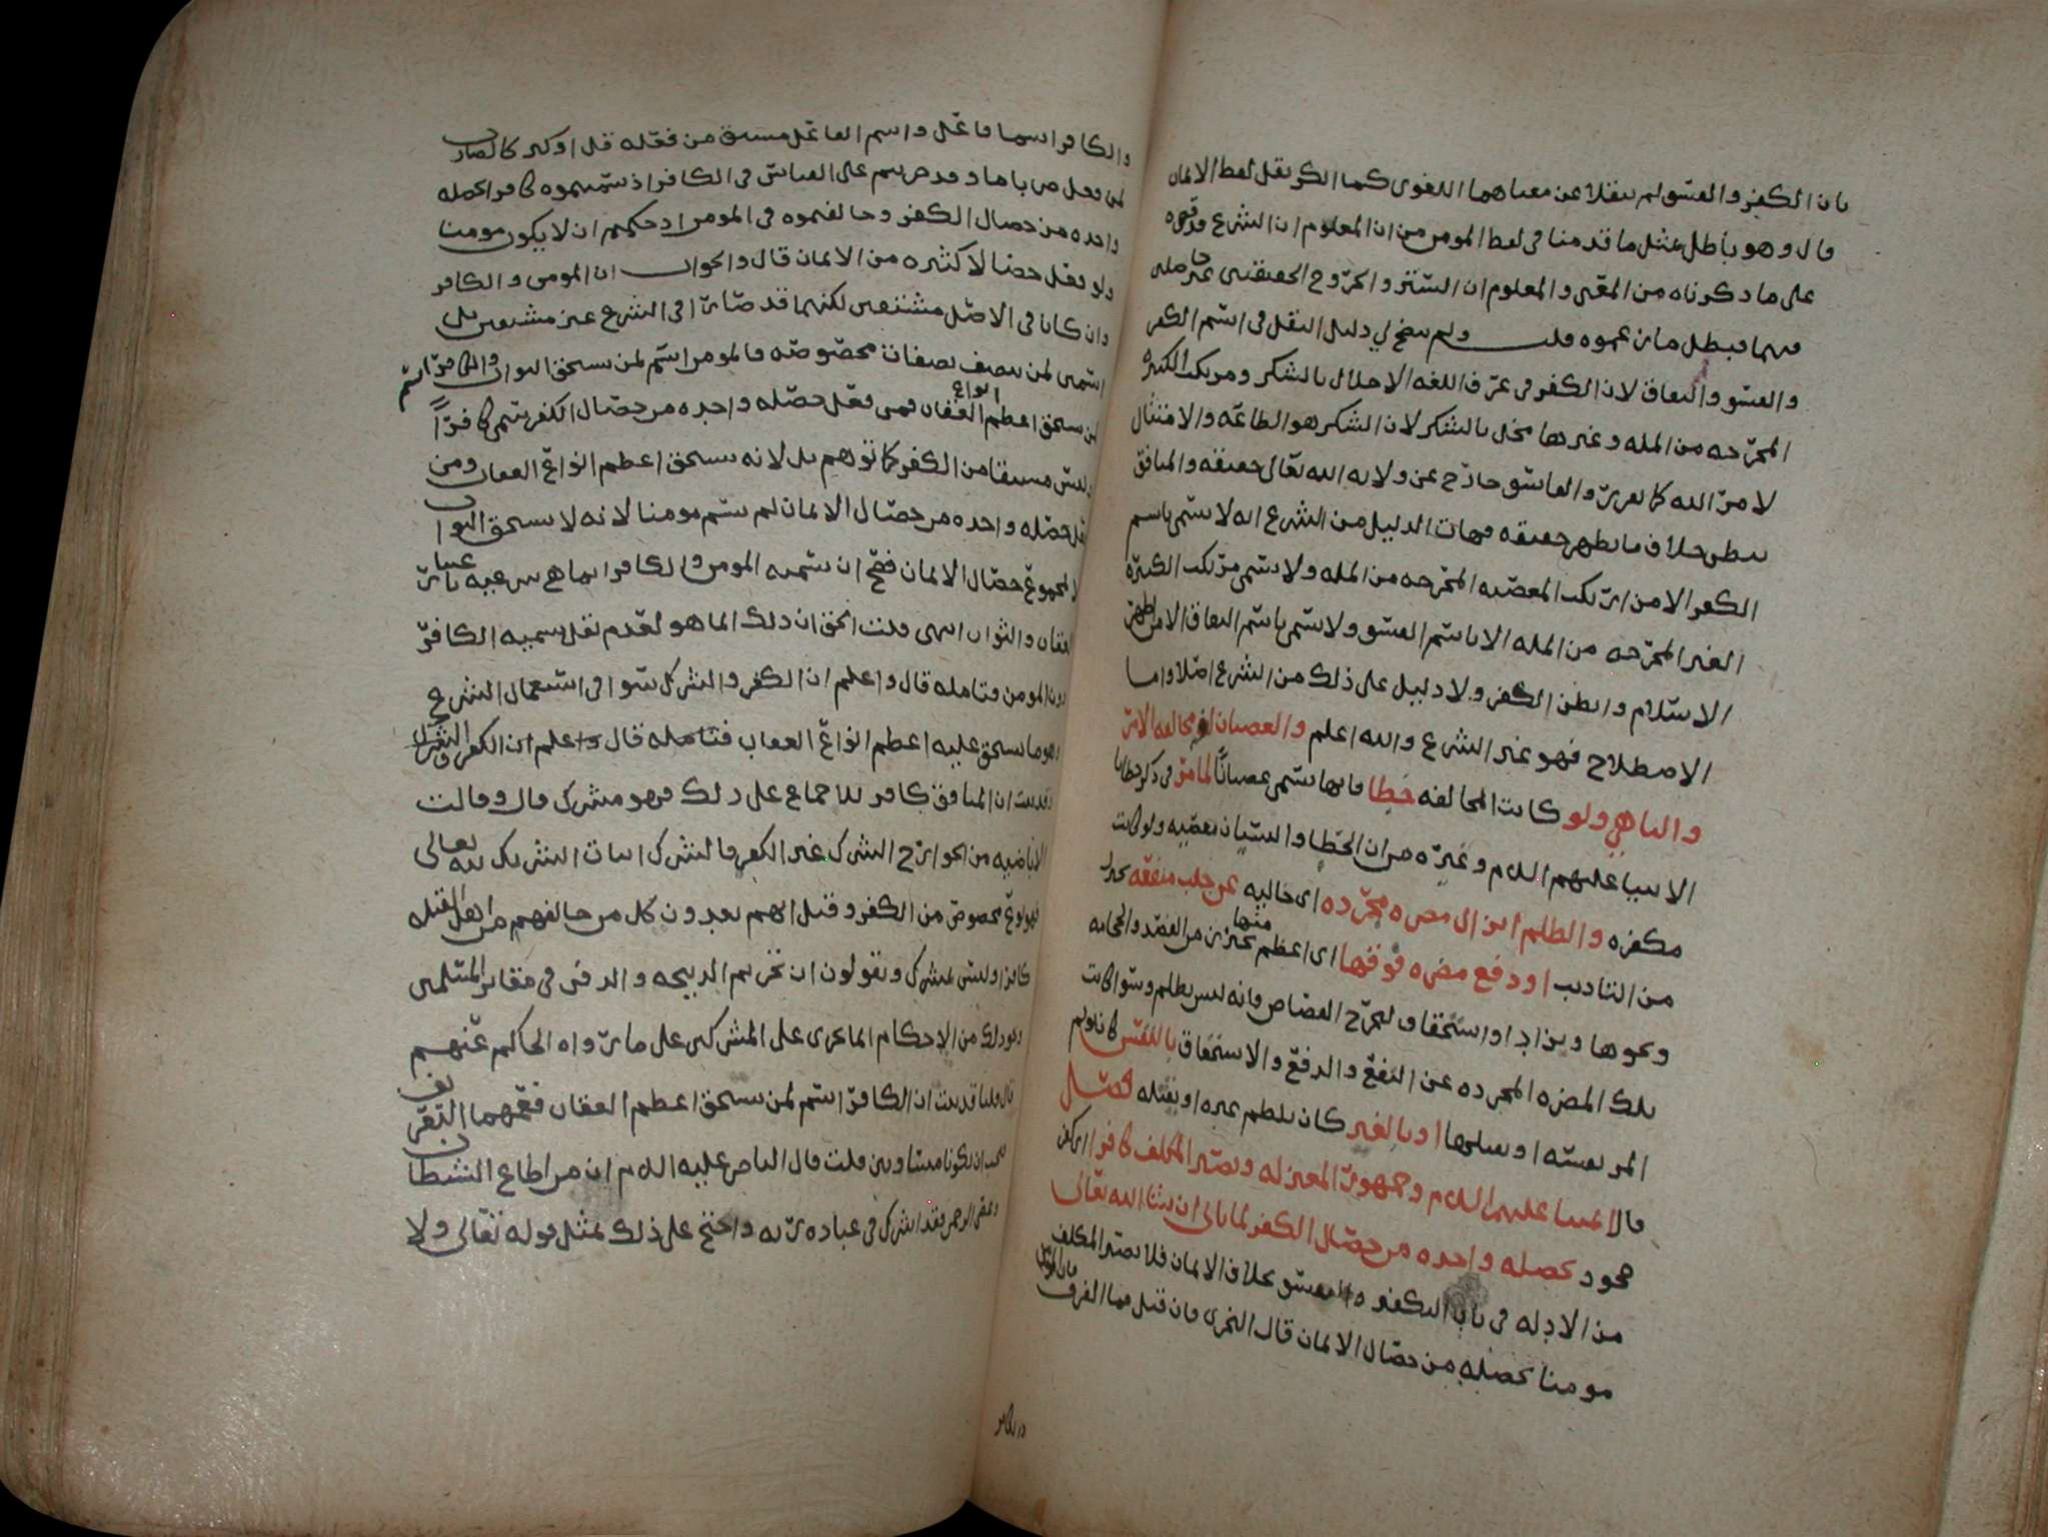 بان الكفر والفسق لم ينقلا عن معناهما اللغوي كما انكر نقل لفظ الايمان
قال وهو باطل بمثل ما قدمنا في لفظ المومن من ان المعلوم ان الشرع قد قصره
على ما ذكرناه من المعنى والمعلوم ان الستر والخروج الحقيقيين غير حاصلين
فيهما فبطل ما زعموه قلت ولم يتضح لي دليل النقل في اسم الكفر
والفسق والنفاق لان الكفر في عرف اللغه الاخلال بالشكر ومرتكب الكبيره
المخرجه من المله وغيرها مخل بالشكر لان الشكر هو الطاعه والامتثال
لامر الله كما تقرر والفاسق خارج عن ولايه الله تعالى حقيقه والمنافق
يبطن خلاف ما يظهر حقيقه فهات الدليل من الشرع انه لا يسمى باسم
الكفر الا من ارتكب المعصيه المخرجه من المله ولا يسمى مرتكب الكبيره
الغير المخرجه من المله الا باسم الفسق ولا يسمى باسم النفاق الا من اظهر
الاسلام وابطن الكفر ولا دليل على ذلك من الشرع اصلا واما
الاصطلاح فهو غير الشرع والله اعلم والعصيان مخالفه الامر
والناهي ولو كانت المخالفه خطا فانها تسمى عصيانا لما مر في ذكر خطايا
الانبيا عليهم السلام وغيره من ان الخطا والنسيان معصيه ولو كانت
مكفره والظلم انزال مضره مجرده اي خاليه عن جلب منفعه
من التاديب او دفع مضره فوقها اي اعظم منها من الفصد والحجامه
ونحوها او استحقاق ليخرج القصاص فانه ليس بظلم وسوا كانت
تلك المضره المجرده عن النفع والدفع والاستحقاق بالنفس كان يولم
المر نفسه او بالغير كان يلطم غيره او يقتله فصل
قال ائمتنا عليهم السلام وجمهور المعتزله ويصير المكلف كافرا اي كفر
جحود بخصله واحده من خصال الكفر لما ياتي ان شا الله تعالى
من الادله في باب التكفير والتفسيق بخلاف الايمان فلا يصير المكلف
مومنا بخصله من خصال الايمان قال النجري فان قيل فما الفرق
والكافر اسما فاعل واسم الفاعل مشتق من فعله قل او كثر كالضارب
لمن فعل ضربا ما وقد جريتم على القياس في الكافر اذ سميتموه كافرا بخصله
واحده من خصال الكفر وخالفتموه في المومن اذ حكمتم ان لا يكون مومنا
ولو فعل خصالا كثيره من الايمان قال والجواب ان المومن والكافر
وان كانا في الاصل مشتقين لكنهما قد صارا في الشرع غير مشتقين بل
اسمين لمن يتصف بصفات مخصوصه فالمومن اسم لمن يستحق الثواب والكافر اسم
لمن يستحق اعظم انواع العقاب فمن فعل خصله واحده من خصال الكفر سمي كافرا
وليس مشتقا من الكفر كما توهم بل لانه يستحق اعظم انواع العقاب ومن
فعل خصله واحده من خصال الايمان لم يسم مومنا لانه لا يستحق الثواب
الا بمجموع خصال الايمان فصح ان تسميه المومن والكافر انما هي شرعيه باعتبار
العقاب والثواب انتهى قلت الحق ان ذلك انما هو لعدم نقل تسميه الكافر
دون المومن فتامله قال واعلم ان الكفر والشرك سوا في استعمال الشرع
وهو ما يستحق عليه اعظم انواع العقاب فتامله قال واعلم ان الكفر والشرك
وقد ثبت ان المنافق كافر للاجماع على ذلك فهو مشرك قال وقالت
الاباضيه من الخوارج الشرك غير الكفر فالشرك اثبات الشريك لله تعالى
فهو نوع مخصوص من الكفر وقيل انهم يعدون كل من خالفهم من اهل القبله
كافرا وليس بمشرك ويقولون ان تحريم الذبيحه والدفن في مقابر المسلمين
ونحو ذلك من الاحكام انما يجري على المشركين على ما رواه الحاكم عنهم
قال قلنا قد ثبت ان الكافر اسم لمن يستحق اعظم العقاب فعمهما التعريف
فيجب ان يكونا متساويين قلت قال الناصر عليه السلام ان من اطاع الشيطان
وعصى الرحمن فقد اشرك في عباده ربه واحتج على ذلك بمثل قوله تعالى ولا